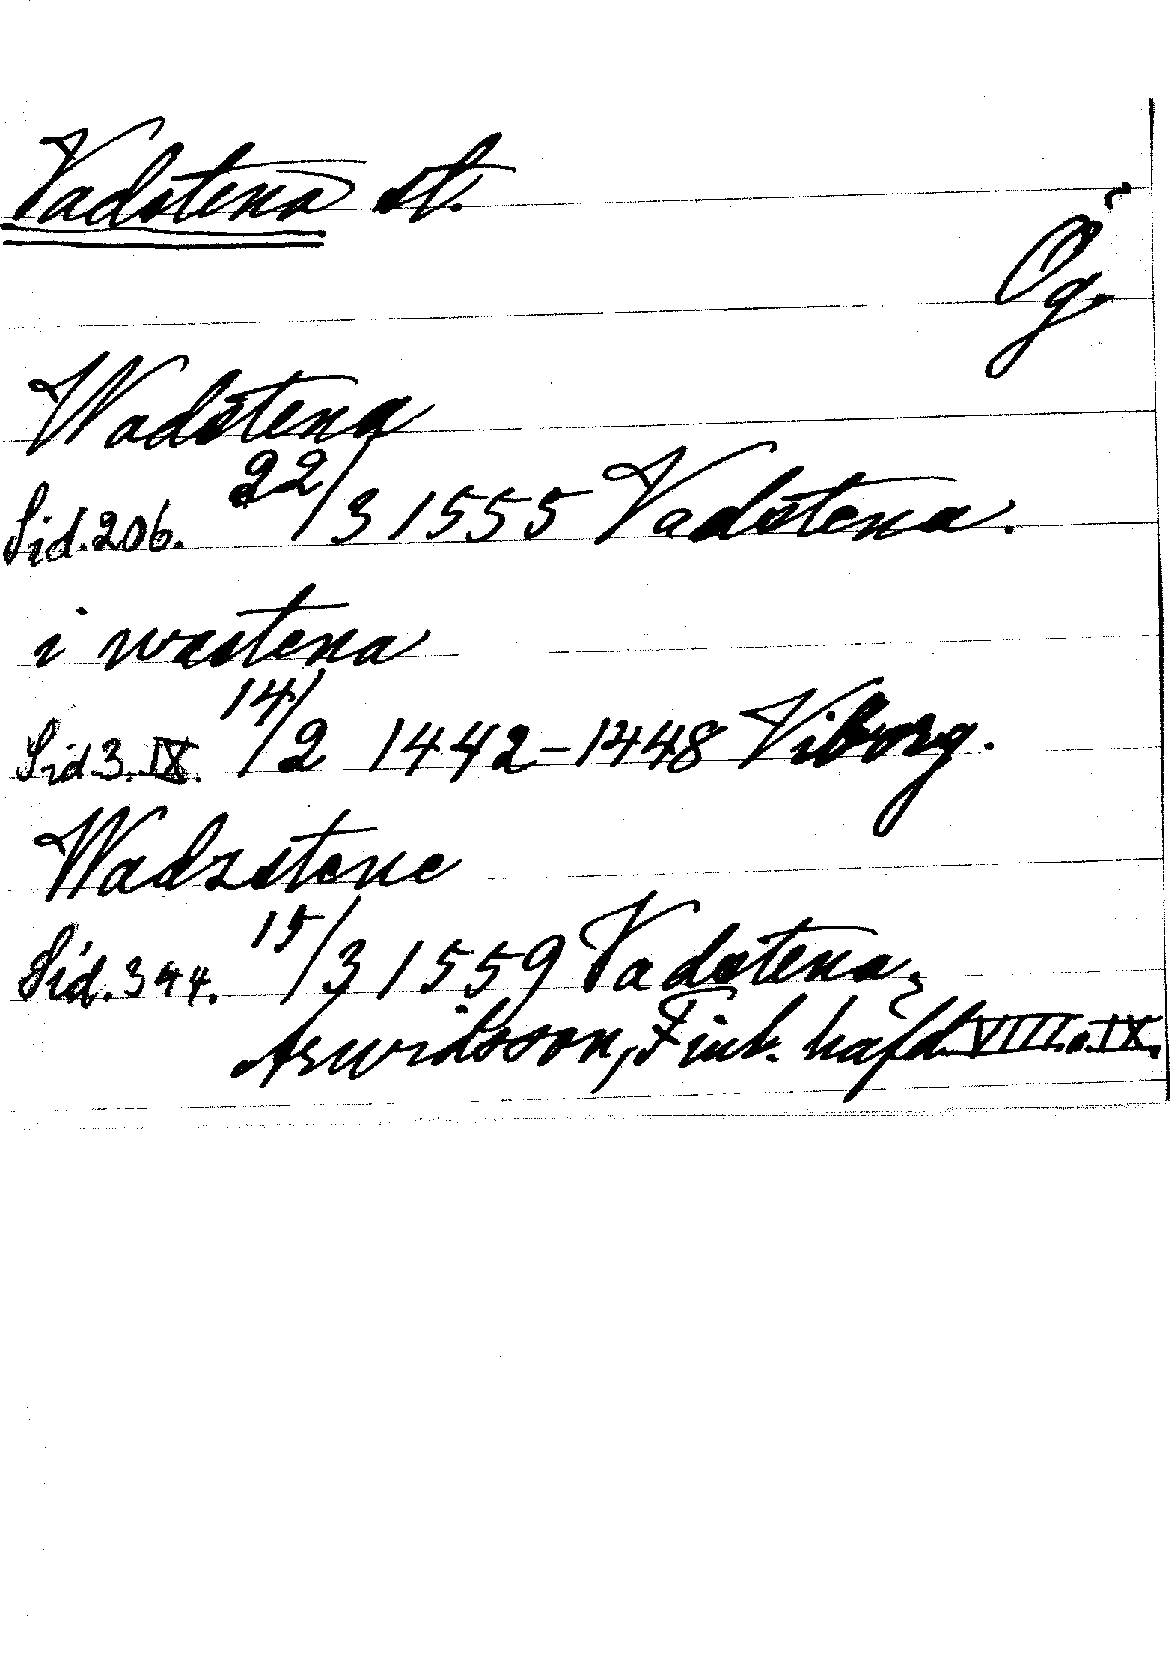 Vadstena st.
Ög.
Wadstena
Sid. 206. 22/3 1555 Vadstena.
i wastena
Sid. 3. IX. 14/2 1442-1448 Viborg.
Wadzstene
Sid. 344. 15/3 1559 Vadstena,
Arwidsson, Finl. häfd. VIII. o. IX.